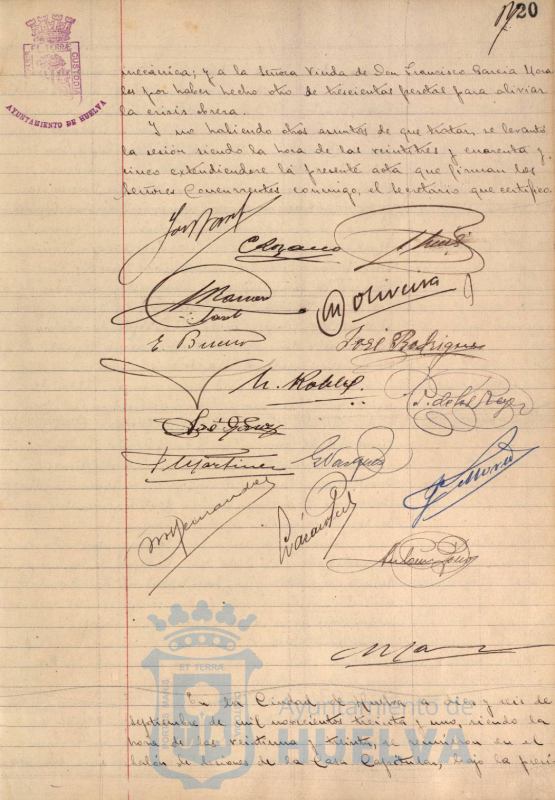 120
ET TERRÆ
CUSTODIA
AYUNTAMIENTO DE HUELVA
mecánica; y a la Señora Viuda de Don Francisco Garcia Mora
les por haber hecho otro de trescientas pesetas para aliviar
la crisis obrera.
Y no habiendo otros asuntos de que tratar, se levantó
la sesión siendo la hora de las veintitres y cuarenta y
cinco extendiendose la presente acta que firman los
Señores Concurrentes conmigo, el Secretario que certifico.
M Oliveira
E. Bueno
José Rodriguez
M. Robles
P. de los Reyes
José
Martinez
E Vazquez
Hernandez
Antonio
En la Ciudad de Huelva a diez y seis de
septiembre de mil novecientos treinta y uno, siendo la
hora de las veintiuna y treinta, se reunieron en el
salón de sesiones de la Casa Capitular, bajo la presi
PORTUS MARIS
ET TERRÆ
Ayuntamiento de
HUELVA